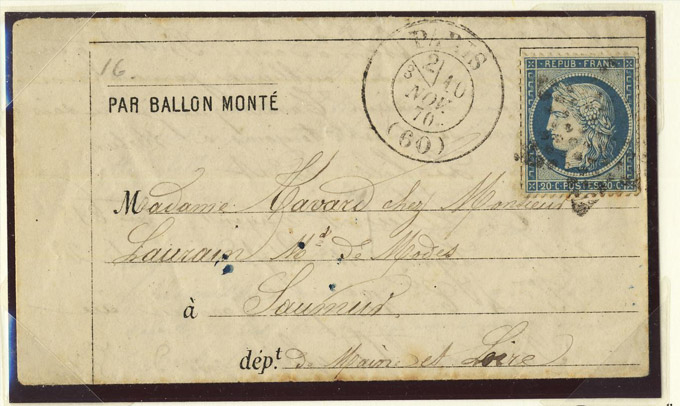 16.
PAR BALLON MONTÉ
PARIS
2
10
NOV.
70
(60)
REPUB. FRANC.
20 C. POSTES 20 C.
Madame Havard chez Monsieur
Laurain Md de Modes
à Saumur
dépt. de Maine et Loire